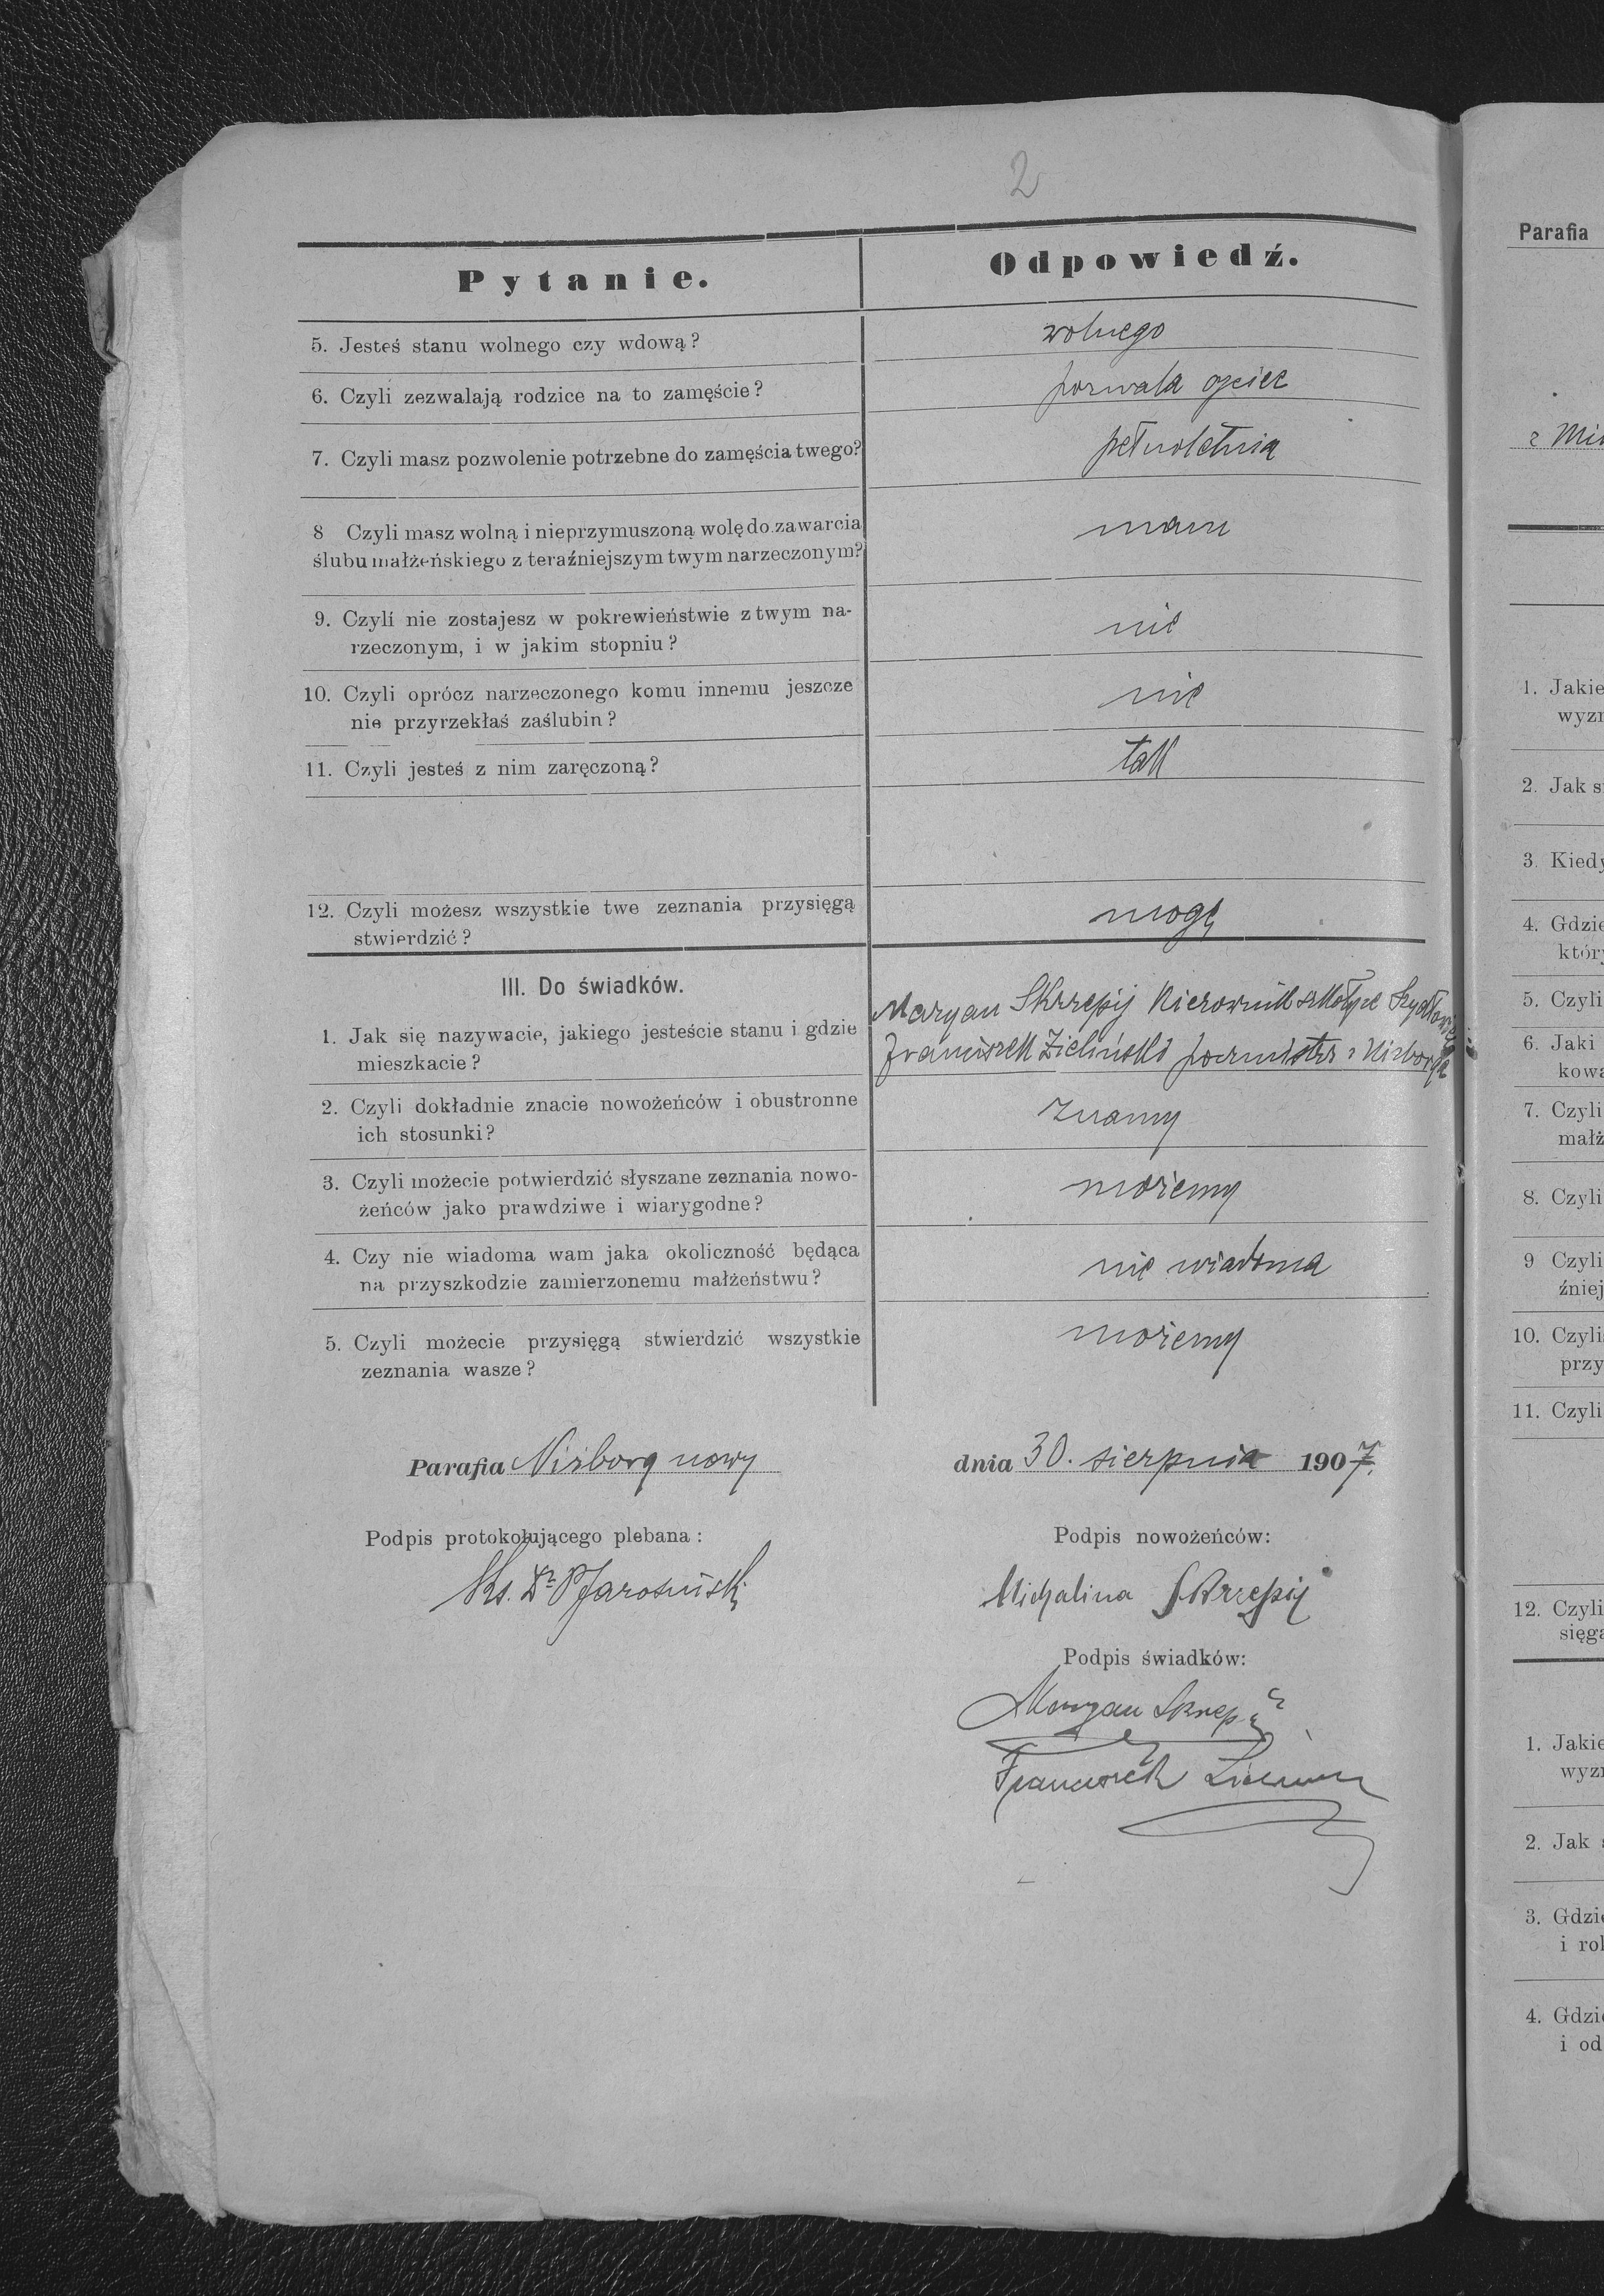 2
Pytanie.
Odpowiedź.
5. Jesteś stanu wolnego czy wdową?
wolnego
6. Czyli zezwalają rodzice na to zamęście?
pozwala ojciec
7. Czyli masz pozwolenie potrzebne do zamęścia twego?
pełnoletnia
8 Czyli masz wolną i nieprzymuszoną wolę do zawarcia
ślubu małżeńskiego z teraźniejszym twym narzeczonym?
mam
9. Czyli nie zostajesz w pokrewieństwie z twym na-
rzeczonym, i w jakim stopniu?
nie
10. Czyli oprócz narzeczonego komu innemu jeszcze
nie przyrzekłaś zaślubin?
nie
11. Czyli jesteś z nim zaręczoną?
tak
12. Czyli możesz wszystkie twe zeznania przysięgą
stwierdzić?
mogę
III. Do świadków.
1. Jak się nazywacie, jakiego jesteście stanu i gdzie
mieszkacie?
Maryan Skrzepij Kierownik szkoły
Franciszek Zieliński poczmistrz z Niżborga
2. Czyli dokładnie znacie nowożeńców i obustronne
ich stosunki?
znamy
3. Czyli możecie potwierdzić słyszane zeznania nowo-
żeńców jako prawdziwe i wiarygodne?
możemy
4. Czy nie wiadoma wam jaka okoliczność będąca
na przyszkodzie zamierzonemu małżeństwu?
nie wiadoma
5. Czyli możecie przysięgą stwierdzić wszystkie
zeznania wasze?
możemy
Parafia Niżborg nowy
dnia 30. sierpnia 1907.
Podpis protokołującego plebana:
Ks. Dr Jarosiński
Podpis nowożeńców:
Michalina Skrzepij
Podpis świadków:
Maryan Skrzepij
Franciszek Zieliński
Parafia
z
1. Jakie
wyzn
2. Jak s
3. Kiedy
4. Gdzie
któr
5. Czyli
6. Jaki
kowa
7. Czyli
małż
8. Czyli
9 Czyli
źniej
10. Czyli
przy
11. Czyli
12. Czyli
sięga
1. Jakie
wyzn
2. Jak
3. Gdzie
i rok
4. Gdzie
i od